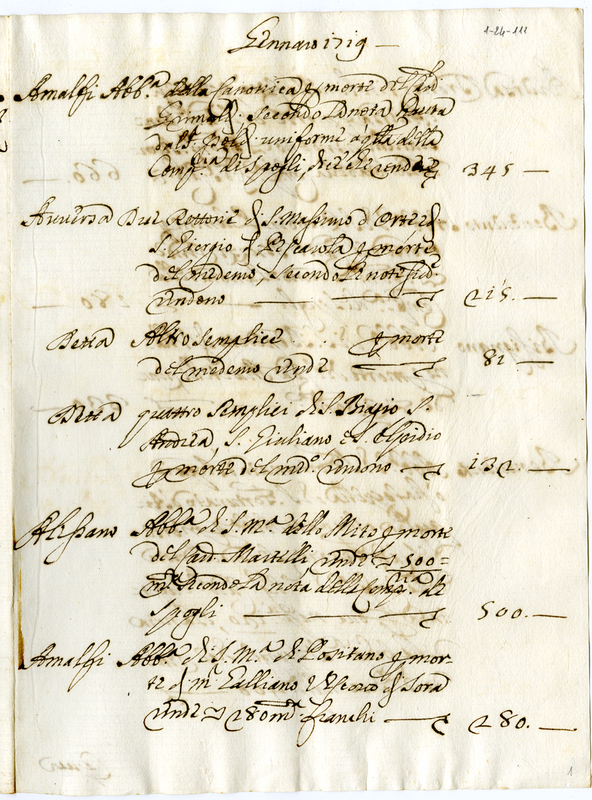 1-24-111
Gennaro 1719 —
Amalfi Abb.ª della Canonica p morte del Card
Grimald. Secondo la nota data
dal S. uniforme a qlla della
Comp.ria di Spogli, che rende 345 —
Aversa Due Rettorie di S. Massimo d'Orta e di
S. Giorgio di Pescarola p morte
del medemo, Secondo le note sud.
rendono — 215. —
Detta Altro semplice . . p morte
del medemo rende — 81 —
Detta quattro Semplici di S. Biagio S.
Andrea, S. Giuliano e S. Elpidio
p morte del med.º rendono — 132. —
Alessano Abb.ª di S. M.ª dello Mito p morte
del Card. Martelli rende 500 =
m.ª Secondo la nota della Comp.ria di
Spogli — 500. —
Amalfi Abb.ª di S. M.ª di Positano p mor-
te di m.r Galliano Vescovo di Sora
rende 280 m.ª franchi — 280. —
1